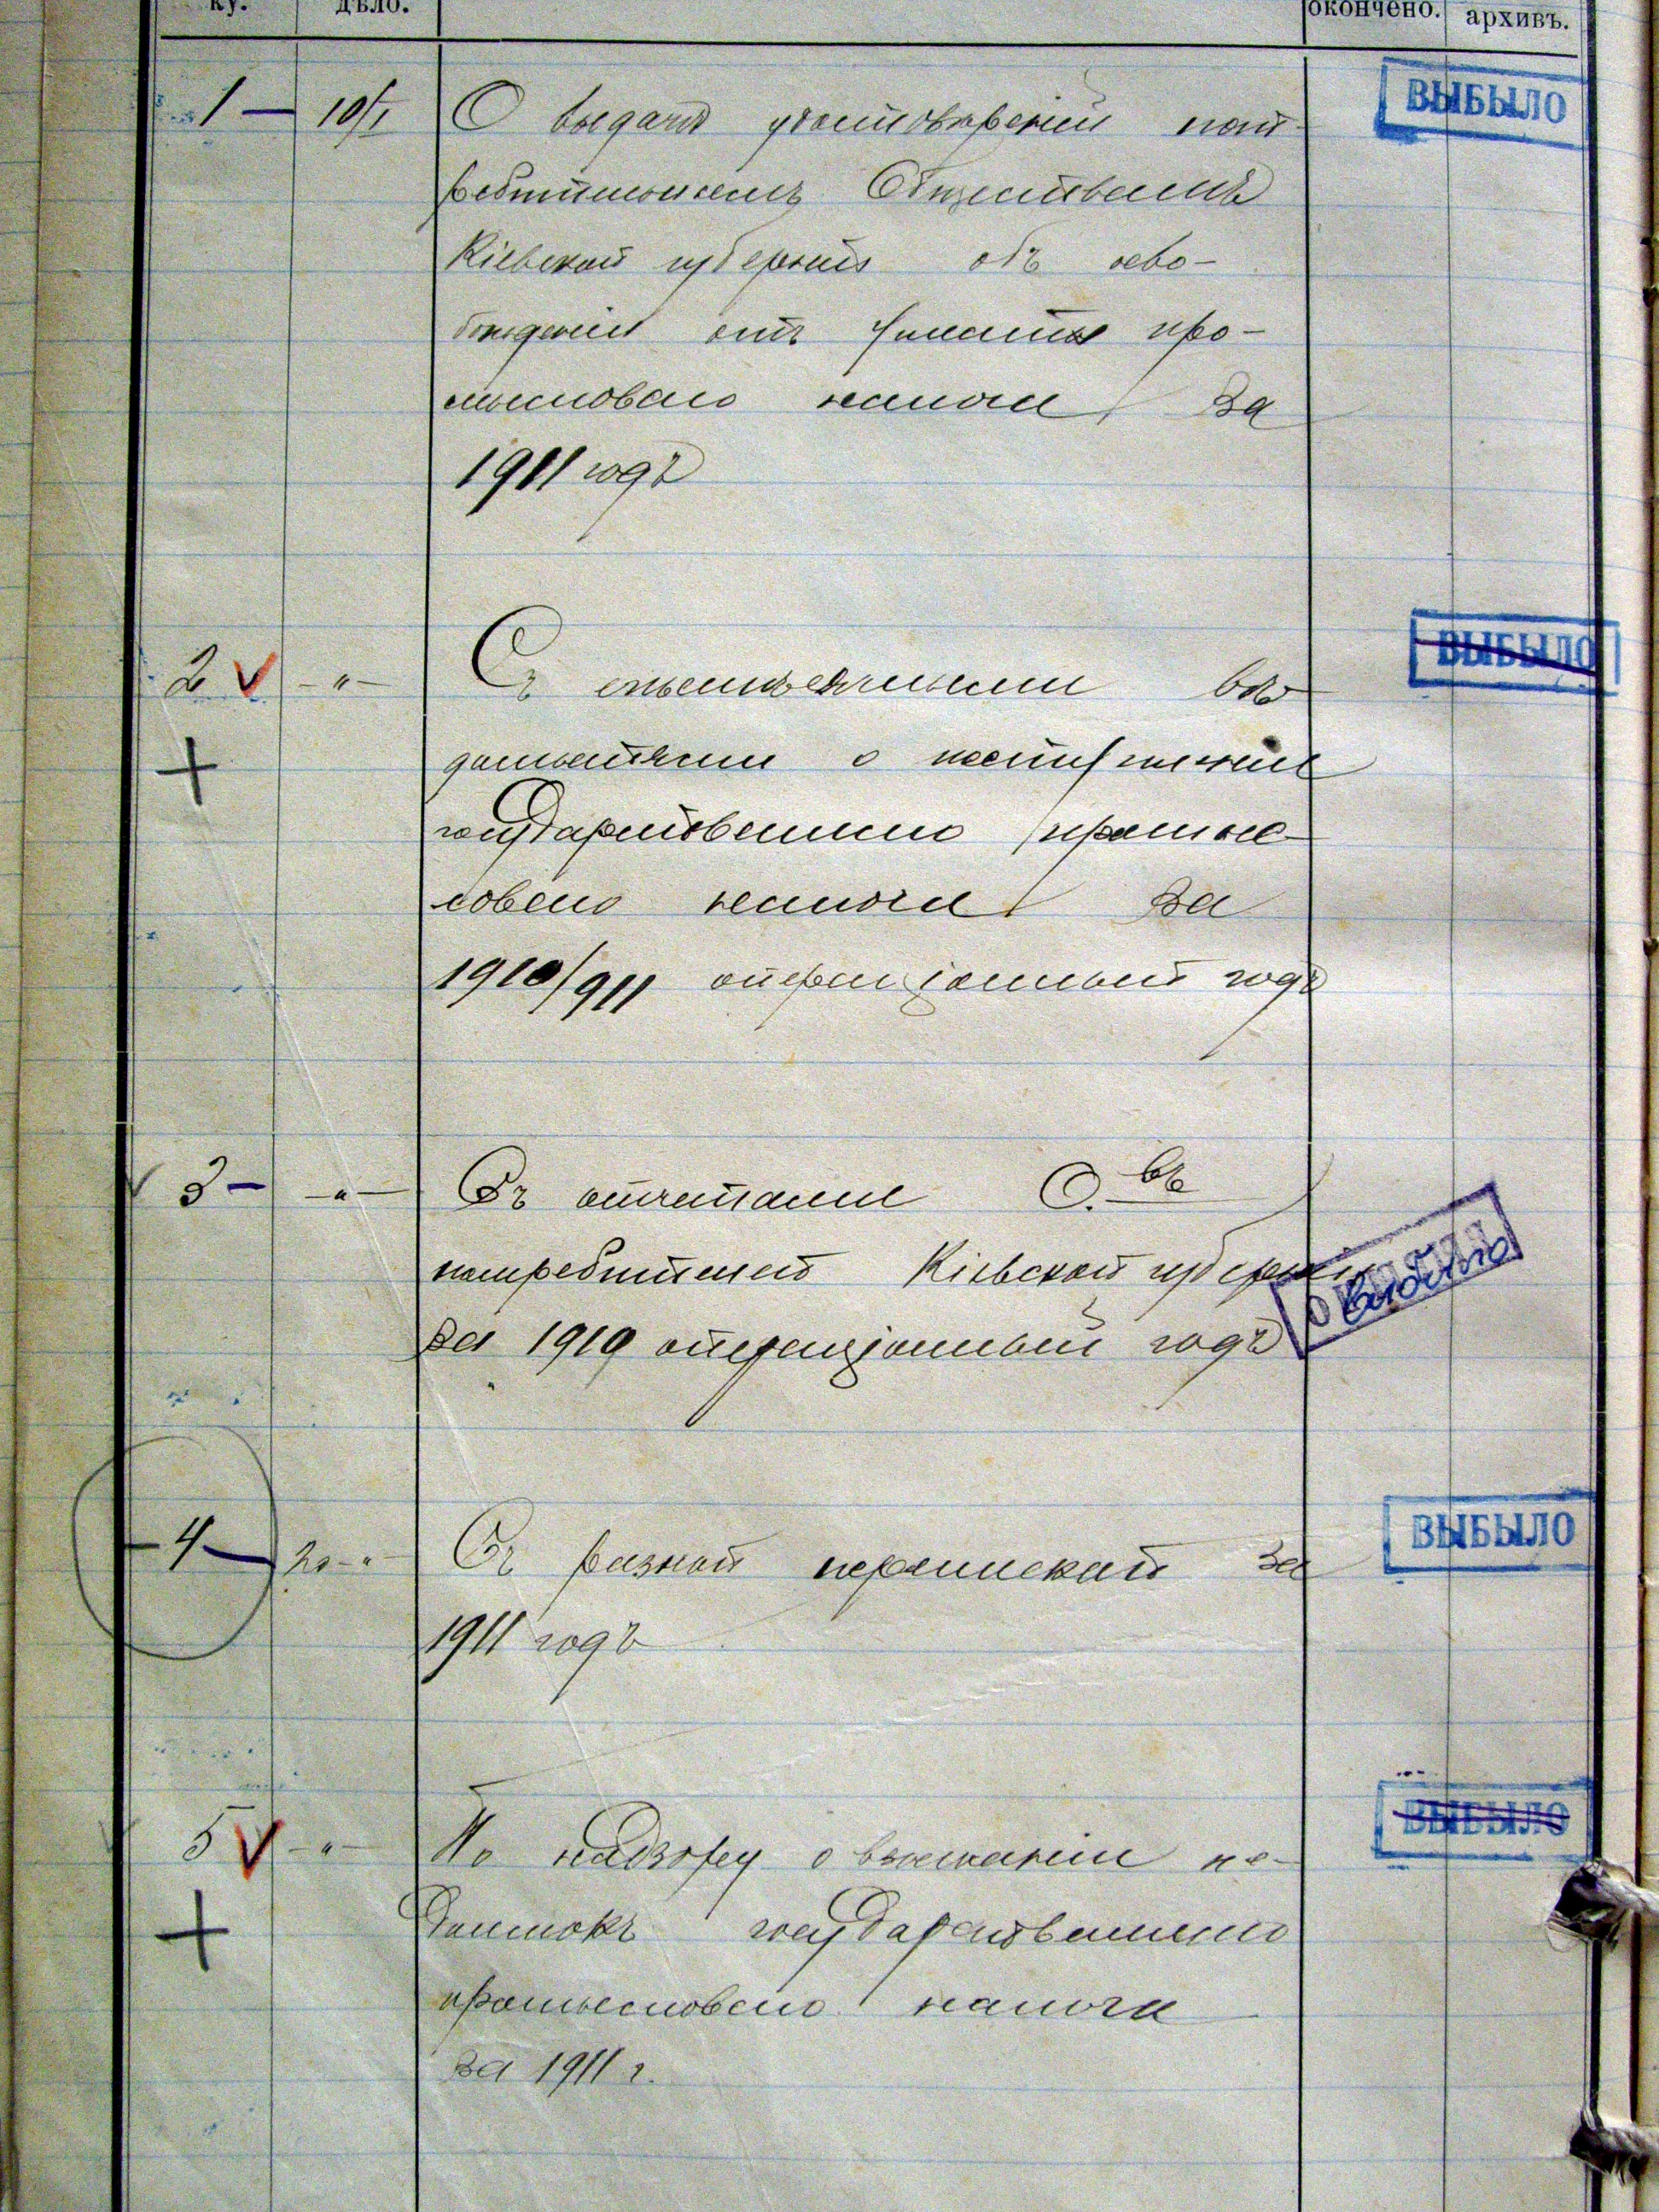 ку. дѣло. окончено. архивъ.
1 — 10/I О выдачѣ удостовѣреній пот-
ребительнымъ Обществамъ
Кіевской губерніи объ осво-
божденіи отъ уплаты про-
мысловаго налога за
1911 годъ
ВЫБЫЛО
2 V - " - Съ ежемѣсячными вѣ-
домостями о поступленіи
+ государственнаго промыс-
ловаго налога за
1910/911 операціонный годъ
ВЫБЫЛО
3 — - " - Съ отчетами О-въ
потребителей Кіевской губерніи
за 1910 операціонный годъ
4 — 20 - " - Съ разной перепиской за
1911 годъ
ВЫБЫЛО
5 V - " - По надзору о взысканіи не-
+ доимокъ государственнаго
промысловаго налога
за 1911 г.
ВЫБЫЛО